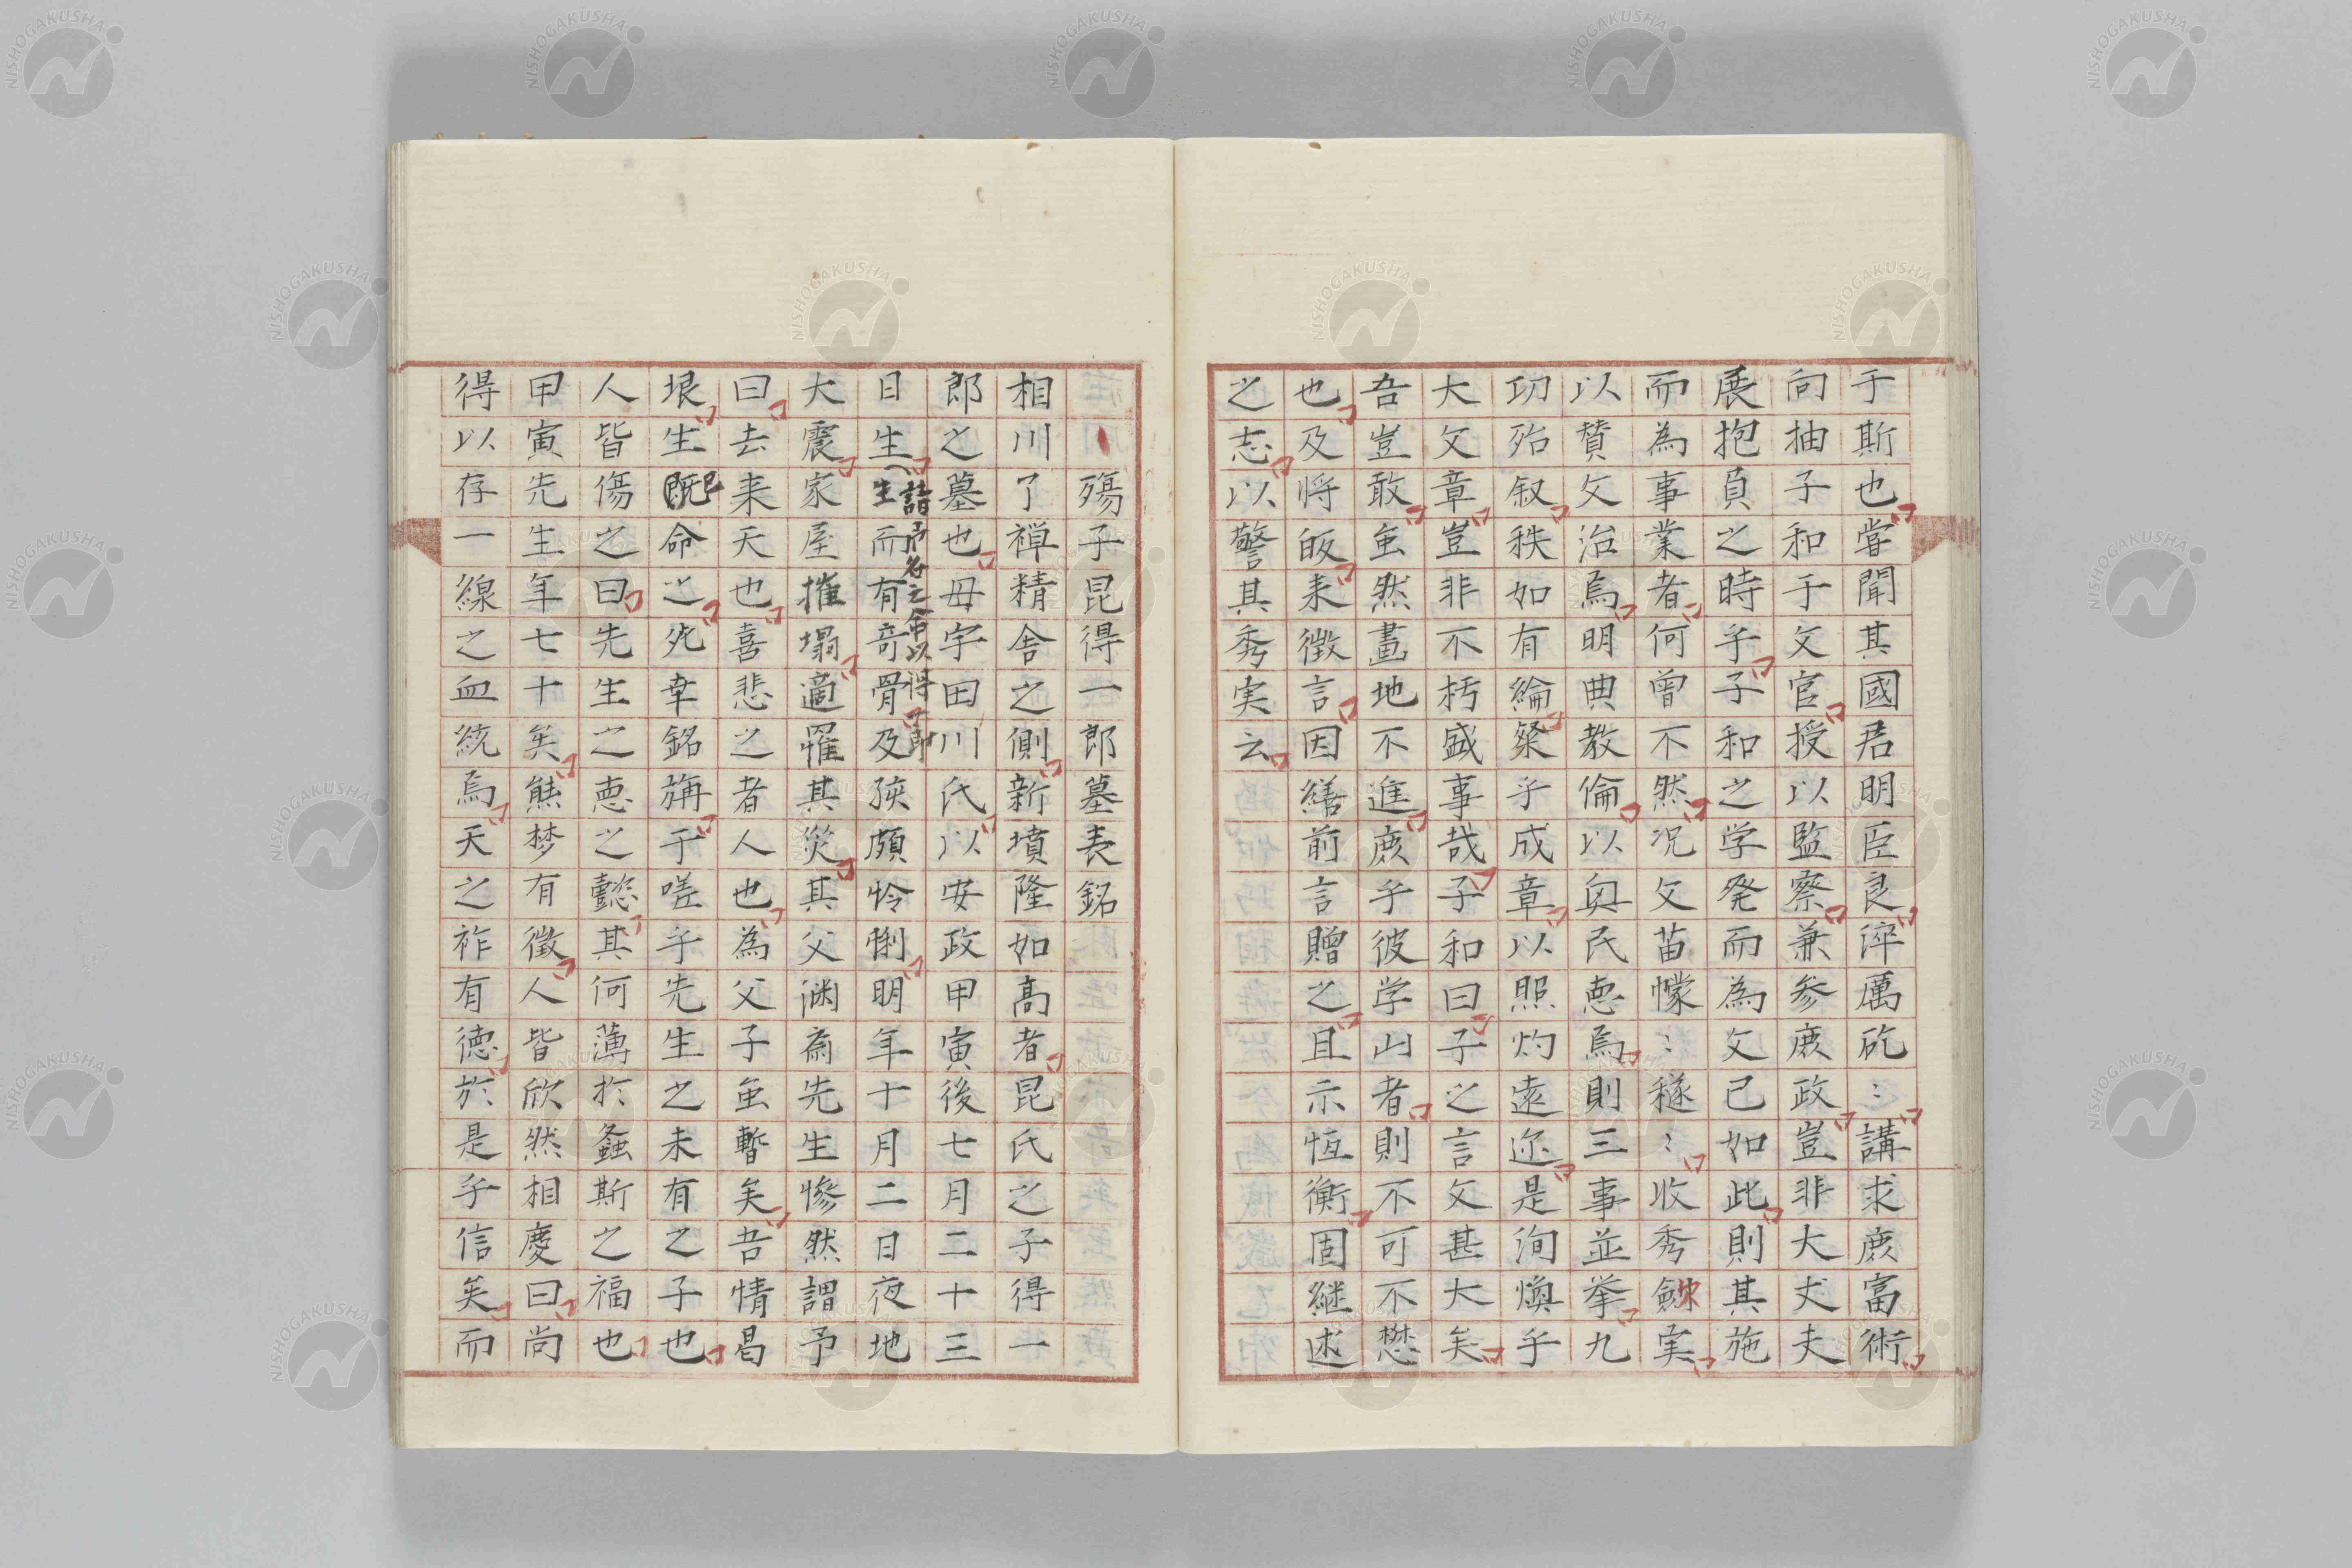 于斯也嘗聞其國君明臣良淬厲矻〻講求庶富術
向抽子和于文官授以監察兼参庶政豈非大丈夫
展抱負之時乎子和之学発而為文已如此則其施
而為事業者何曽不然况文苗懞〻穟〻收秀斂実
以賛文治焉明典教倫以奥民悳焉則三事並挙九
功殆叙秩如有綸粲乎成章以照灼遠迩是洵煥乎
大文章豈非不朽盛事哉子和曰子之言文甚大矣
吾豈敢虽然畫地不進庶乎彼学山者則不可不懋
也及将皈耒徴言因繕前言贈之且示恆衡固継述
之志以警其秀実云
殤子昆得一郎墓表銘
相川了禅精舎之側新墳隆如高者昆氏之子得一
郎之墓也母宇田川氏以安政甲寅後七月二十三
日生生而有竒骨及孩頗怜悧明年十月二日夜地
請予名之命以得一郎
大震家屋摧塌適罹其災其父渊斎先生惨然謂予
曰去耒天也喜悲之者人也為父子虽暫矣吾情曷
垠生既命之死幸銘旃于嗟乎先生之未有之子也
已
人皆傷之曰先生之悳之懿其何薄於螽斯之福也
甲寅先生年七十矣熊梦有徴人皆欣然相慶曰尚
得以存一線之血統焉天之祚有徳於是乎信矣而